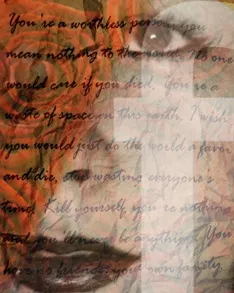 You're a worthless person you
mean nothing to the world. No one
would care if you died. You're a
waste of space on this earth. I wish
you would just do the world a favor
and die, stop wasting everyone's
time. Kill yourself, you're nothing
and you'll never be anything. You
have no friends, your own family